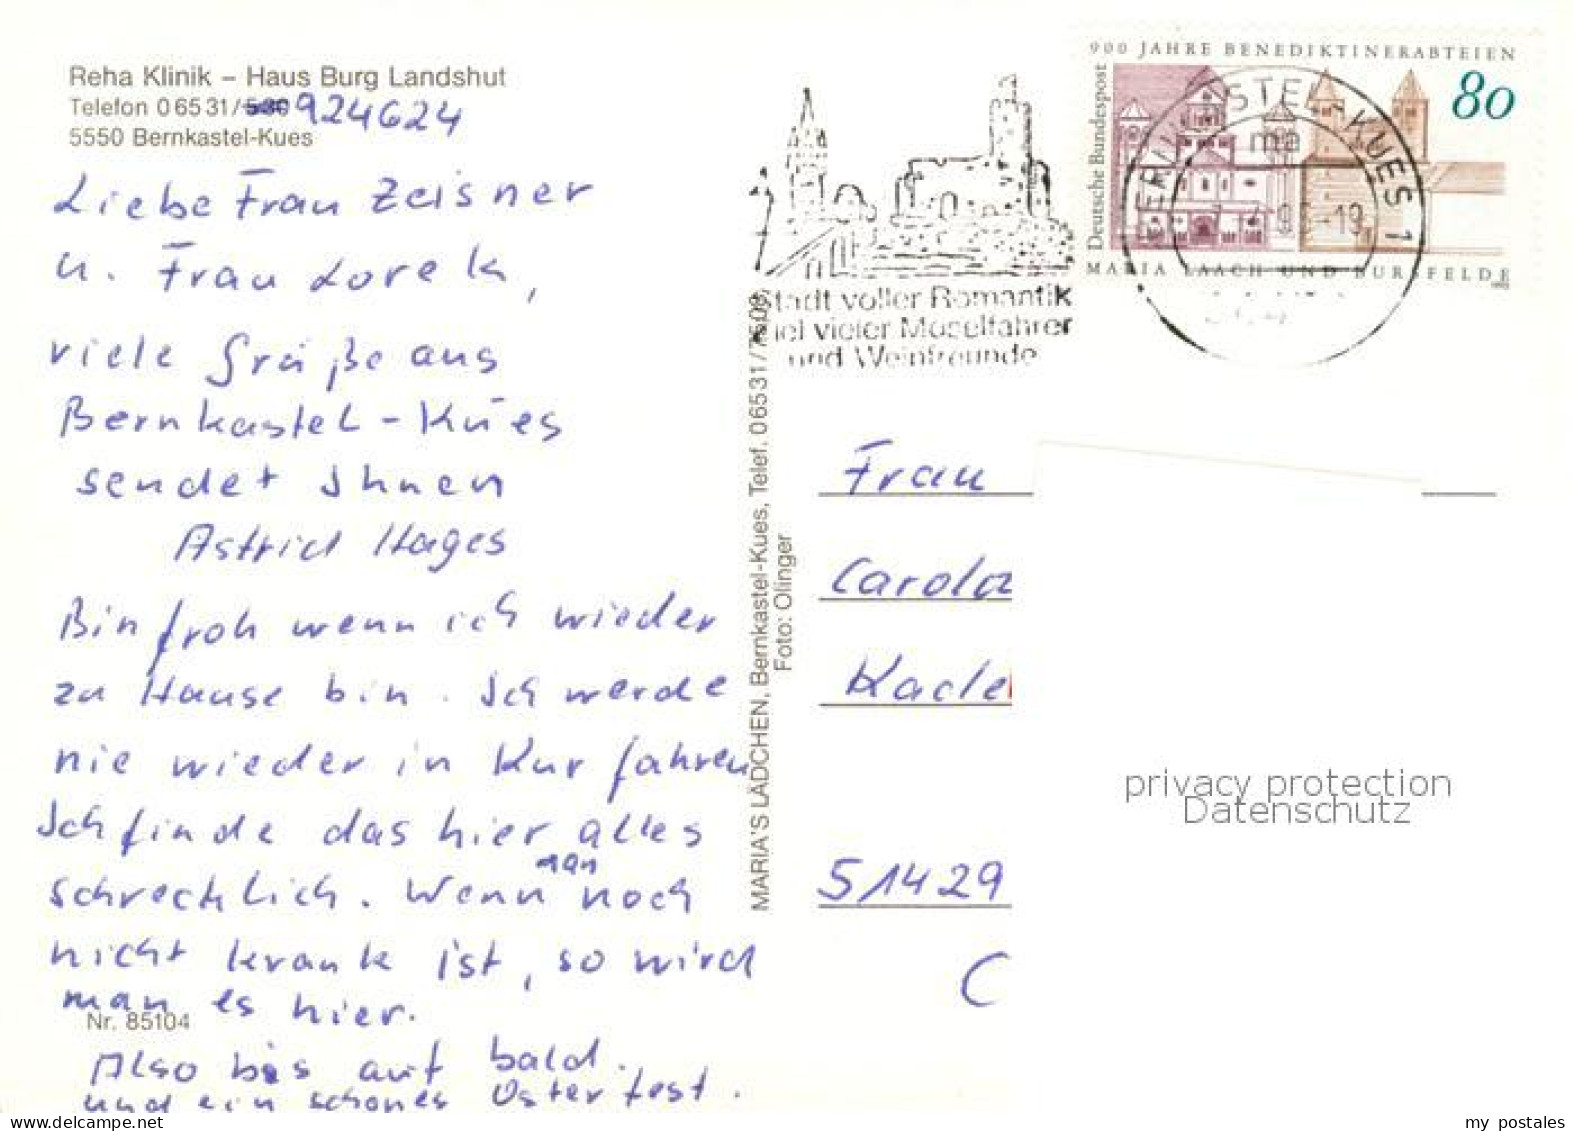 Reha Klinik – Haus Burg Landshut
Telefon 0 65 31/530 924624
5550 Bernkastel-Kues
Liebe Frau Zeisner
u. Frau Lorek,
viele Grüße aus
Bernkastel-Kues
sendet Ihnen
Astrid Hages
Bin froh wenn ich wieder
zu Hause bin. Ich werde
nie wieder in Kur fahren
Ich finde das hier alles
schrecklich. Wenn man noch
nicht krank ist, so wird
man es hier.
Nr. 85104
Also bis auf bald.
und ein schönes Osterfest.
MARIA'S LÄDCHEN, Bernkastel-Kues, Telef. 0 65 31 / 75 09
Foto: Olinger
Stadt voller Romantik
Ziel vieler Moselfahrer
und Weinfreunde
BERNKASTEL-KUES 1
ma
-19
900 JAHRE BENEDIKTINERABTEIEN
80
Deutsche Bundespost
MARIA LAACH UND BURSFELDE
Frau
Carola
Kadel
51429
privacy protection
Datenschutz
www.delcampe.net
my_postales